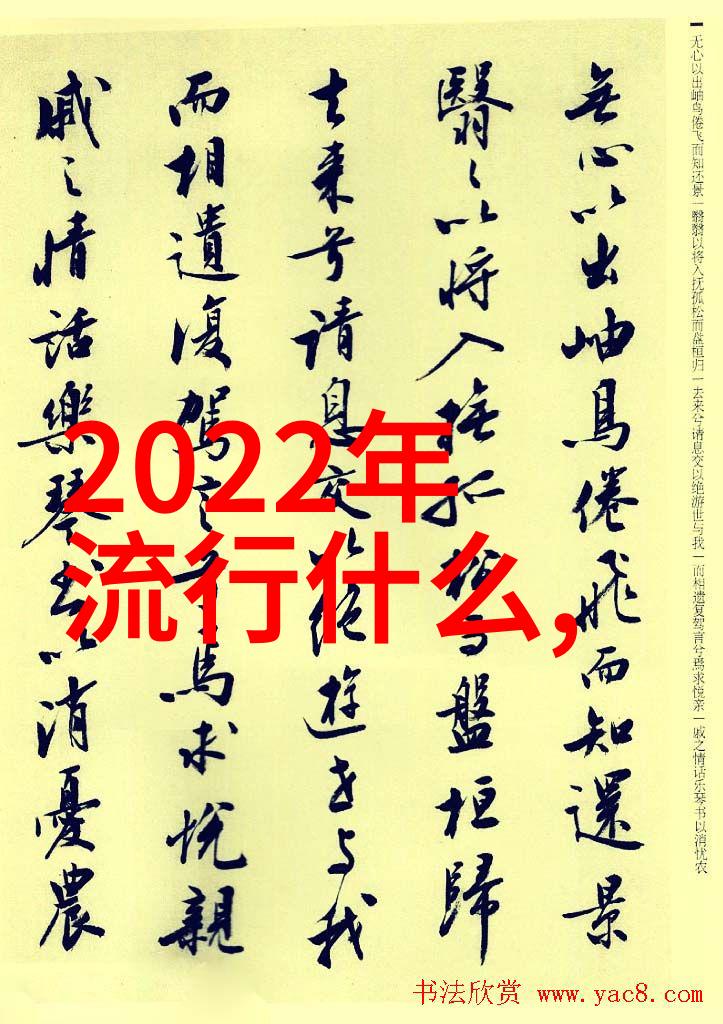 无心以出岫鸟倦飞而知还景一翳翳以将入抚孤松而盘桓归一去来兮请息交以绝游世与我一而相遗复驾言兮焉求悦亲一戚之情话乐琴书以消忧农
無心以出岫鳥倦飛而知還景
翳〻以将入撫孤松而盤桓歸
去来兮请息交以绝遊世与我
而相遺復駕言兮焉求悦親
戚之情話樂琴書以消憂農
2022年
流行什么,
书法欣赏 @ www.yac8.com